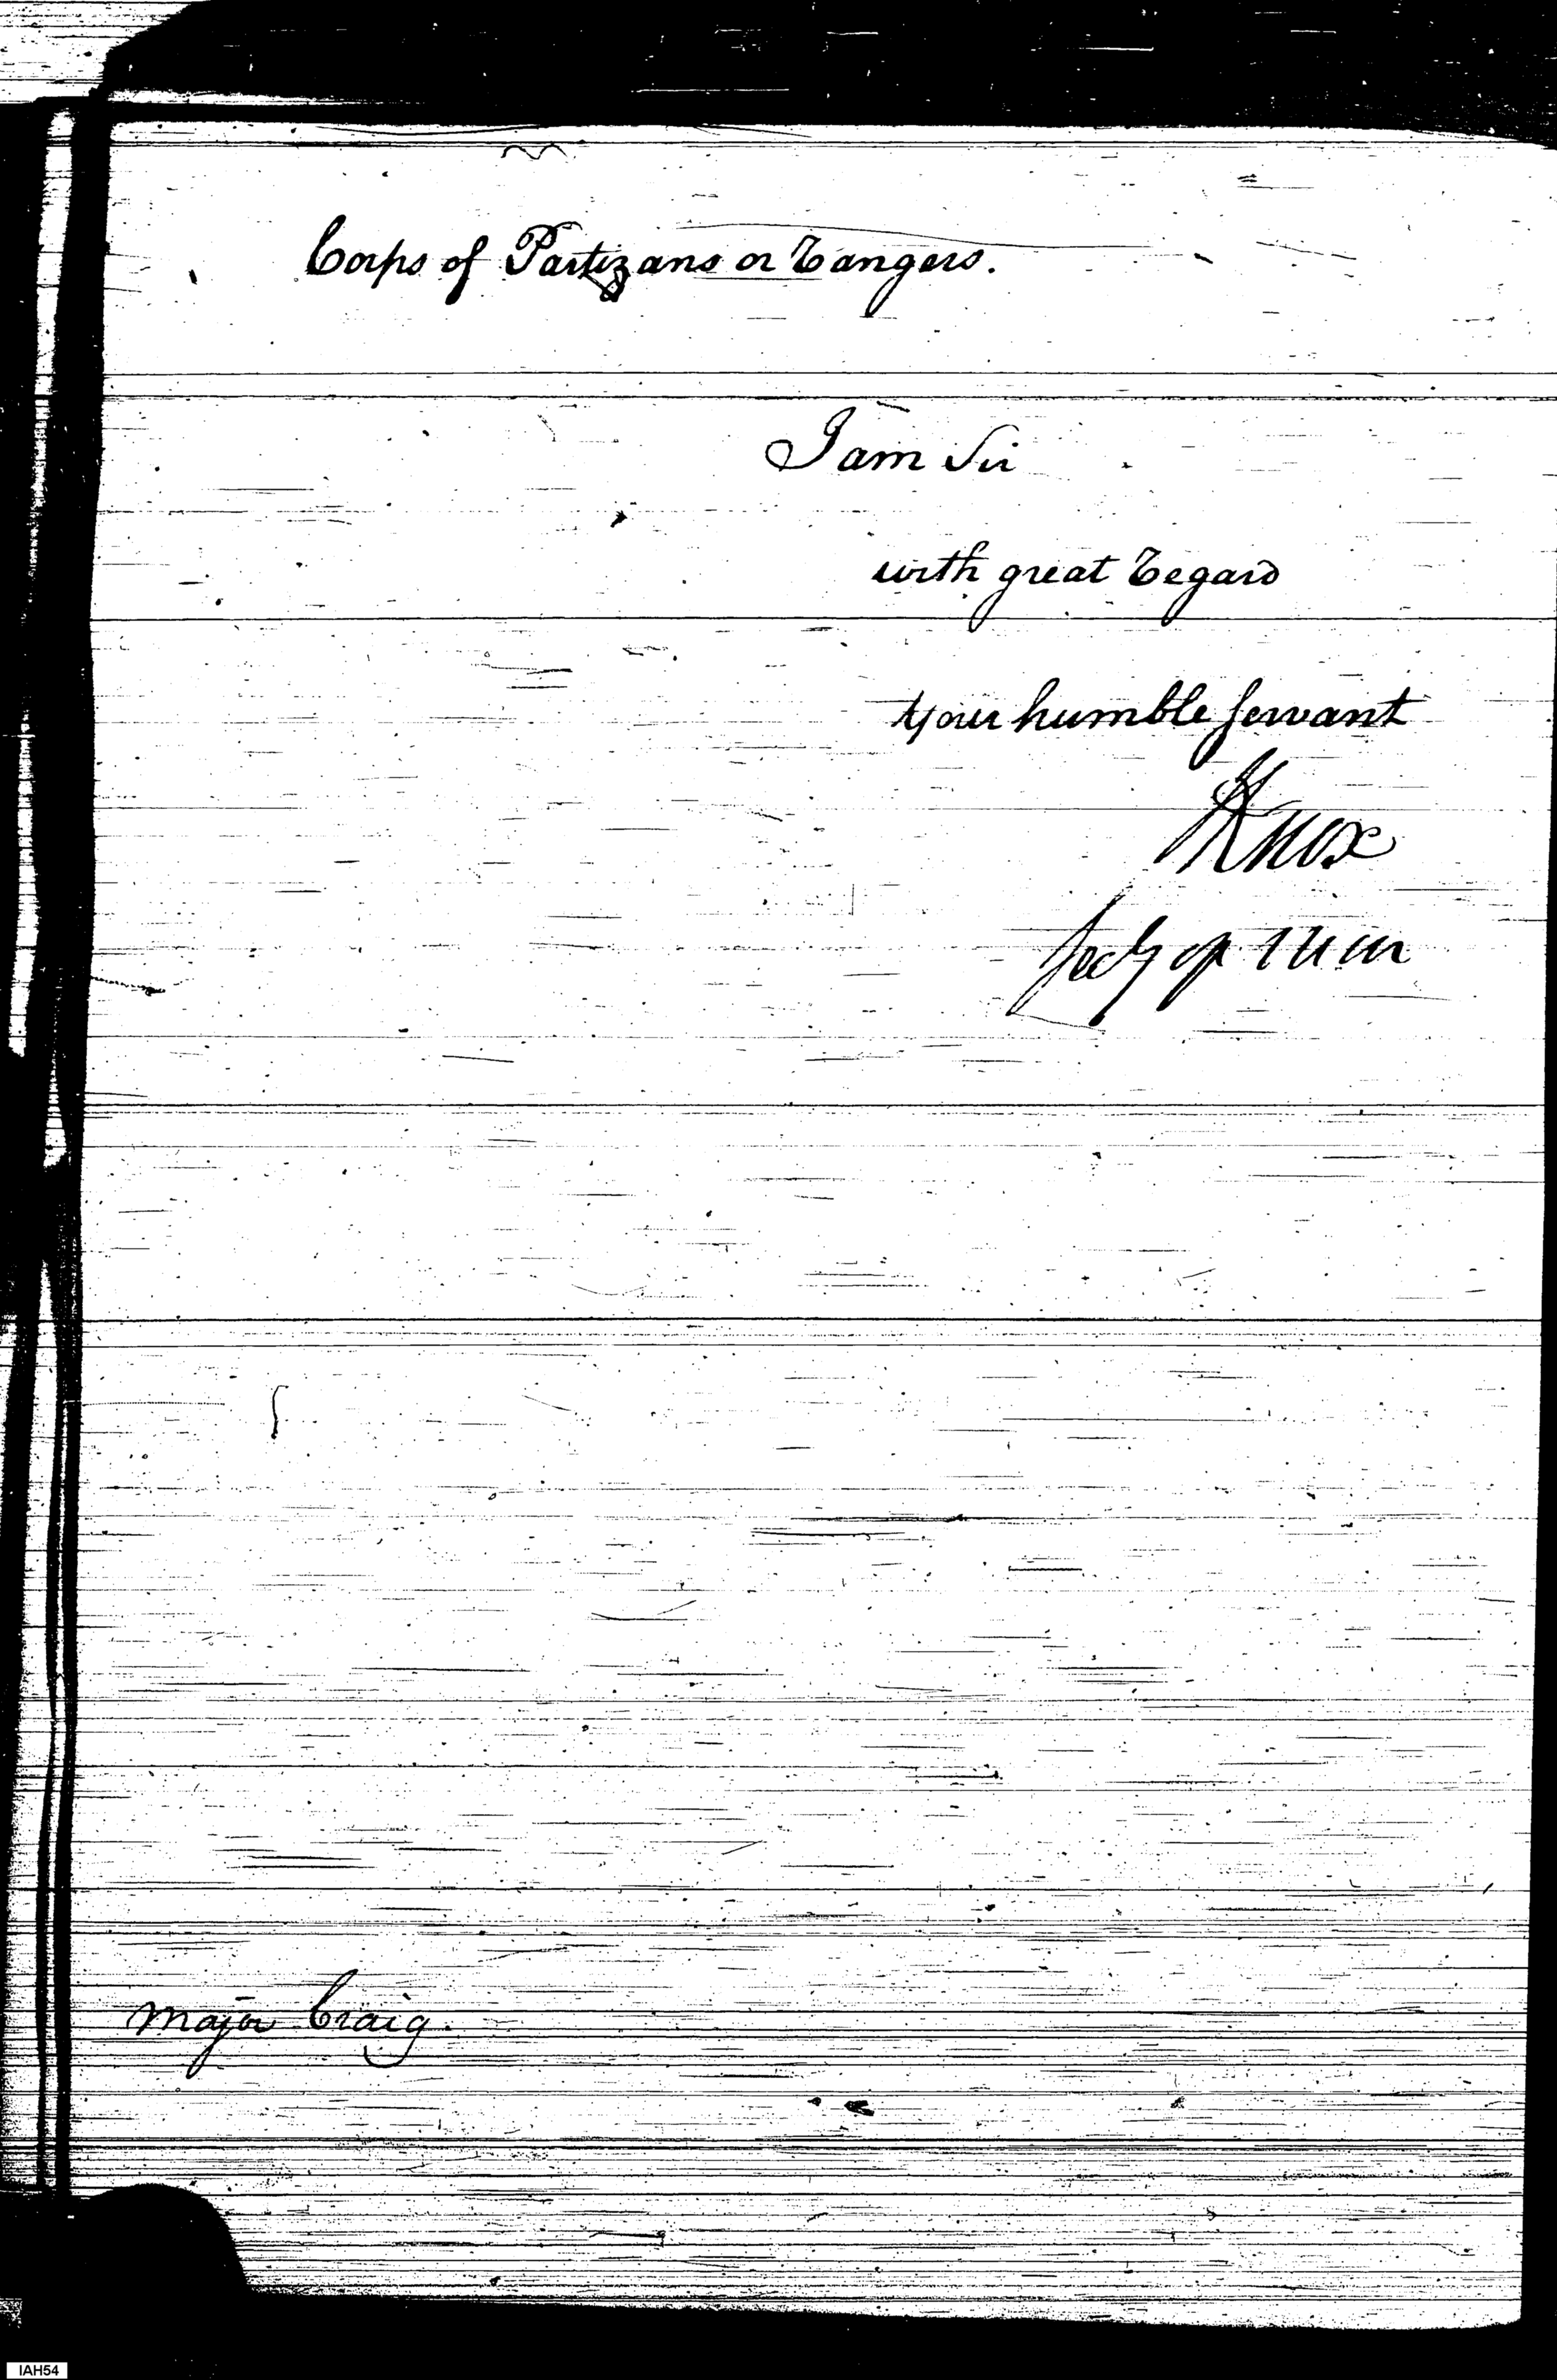 Corps of Partizans or Rangers.
I am Sir
with great regard
Your humble servant
HKnox
Secy of War
Major Craig.
IAH54